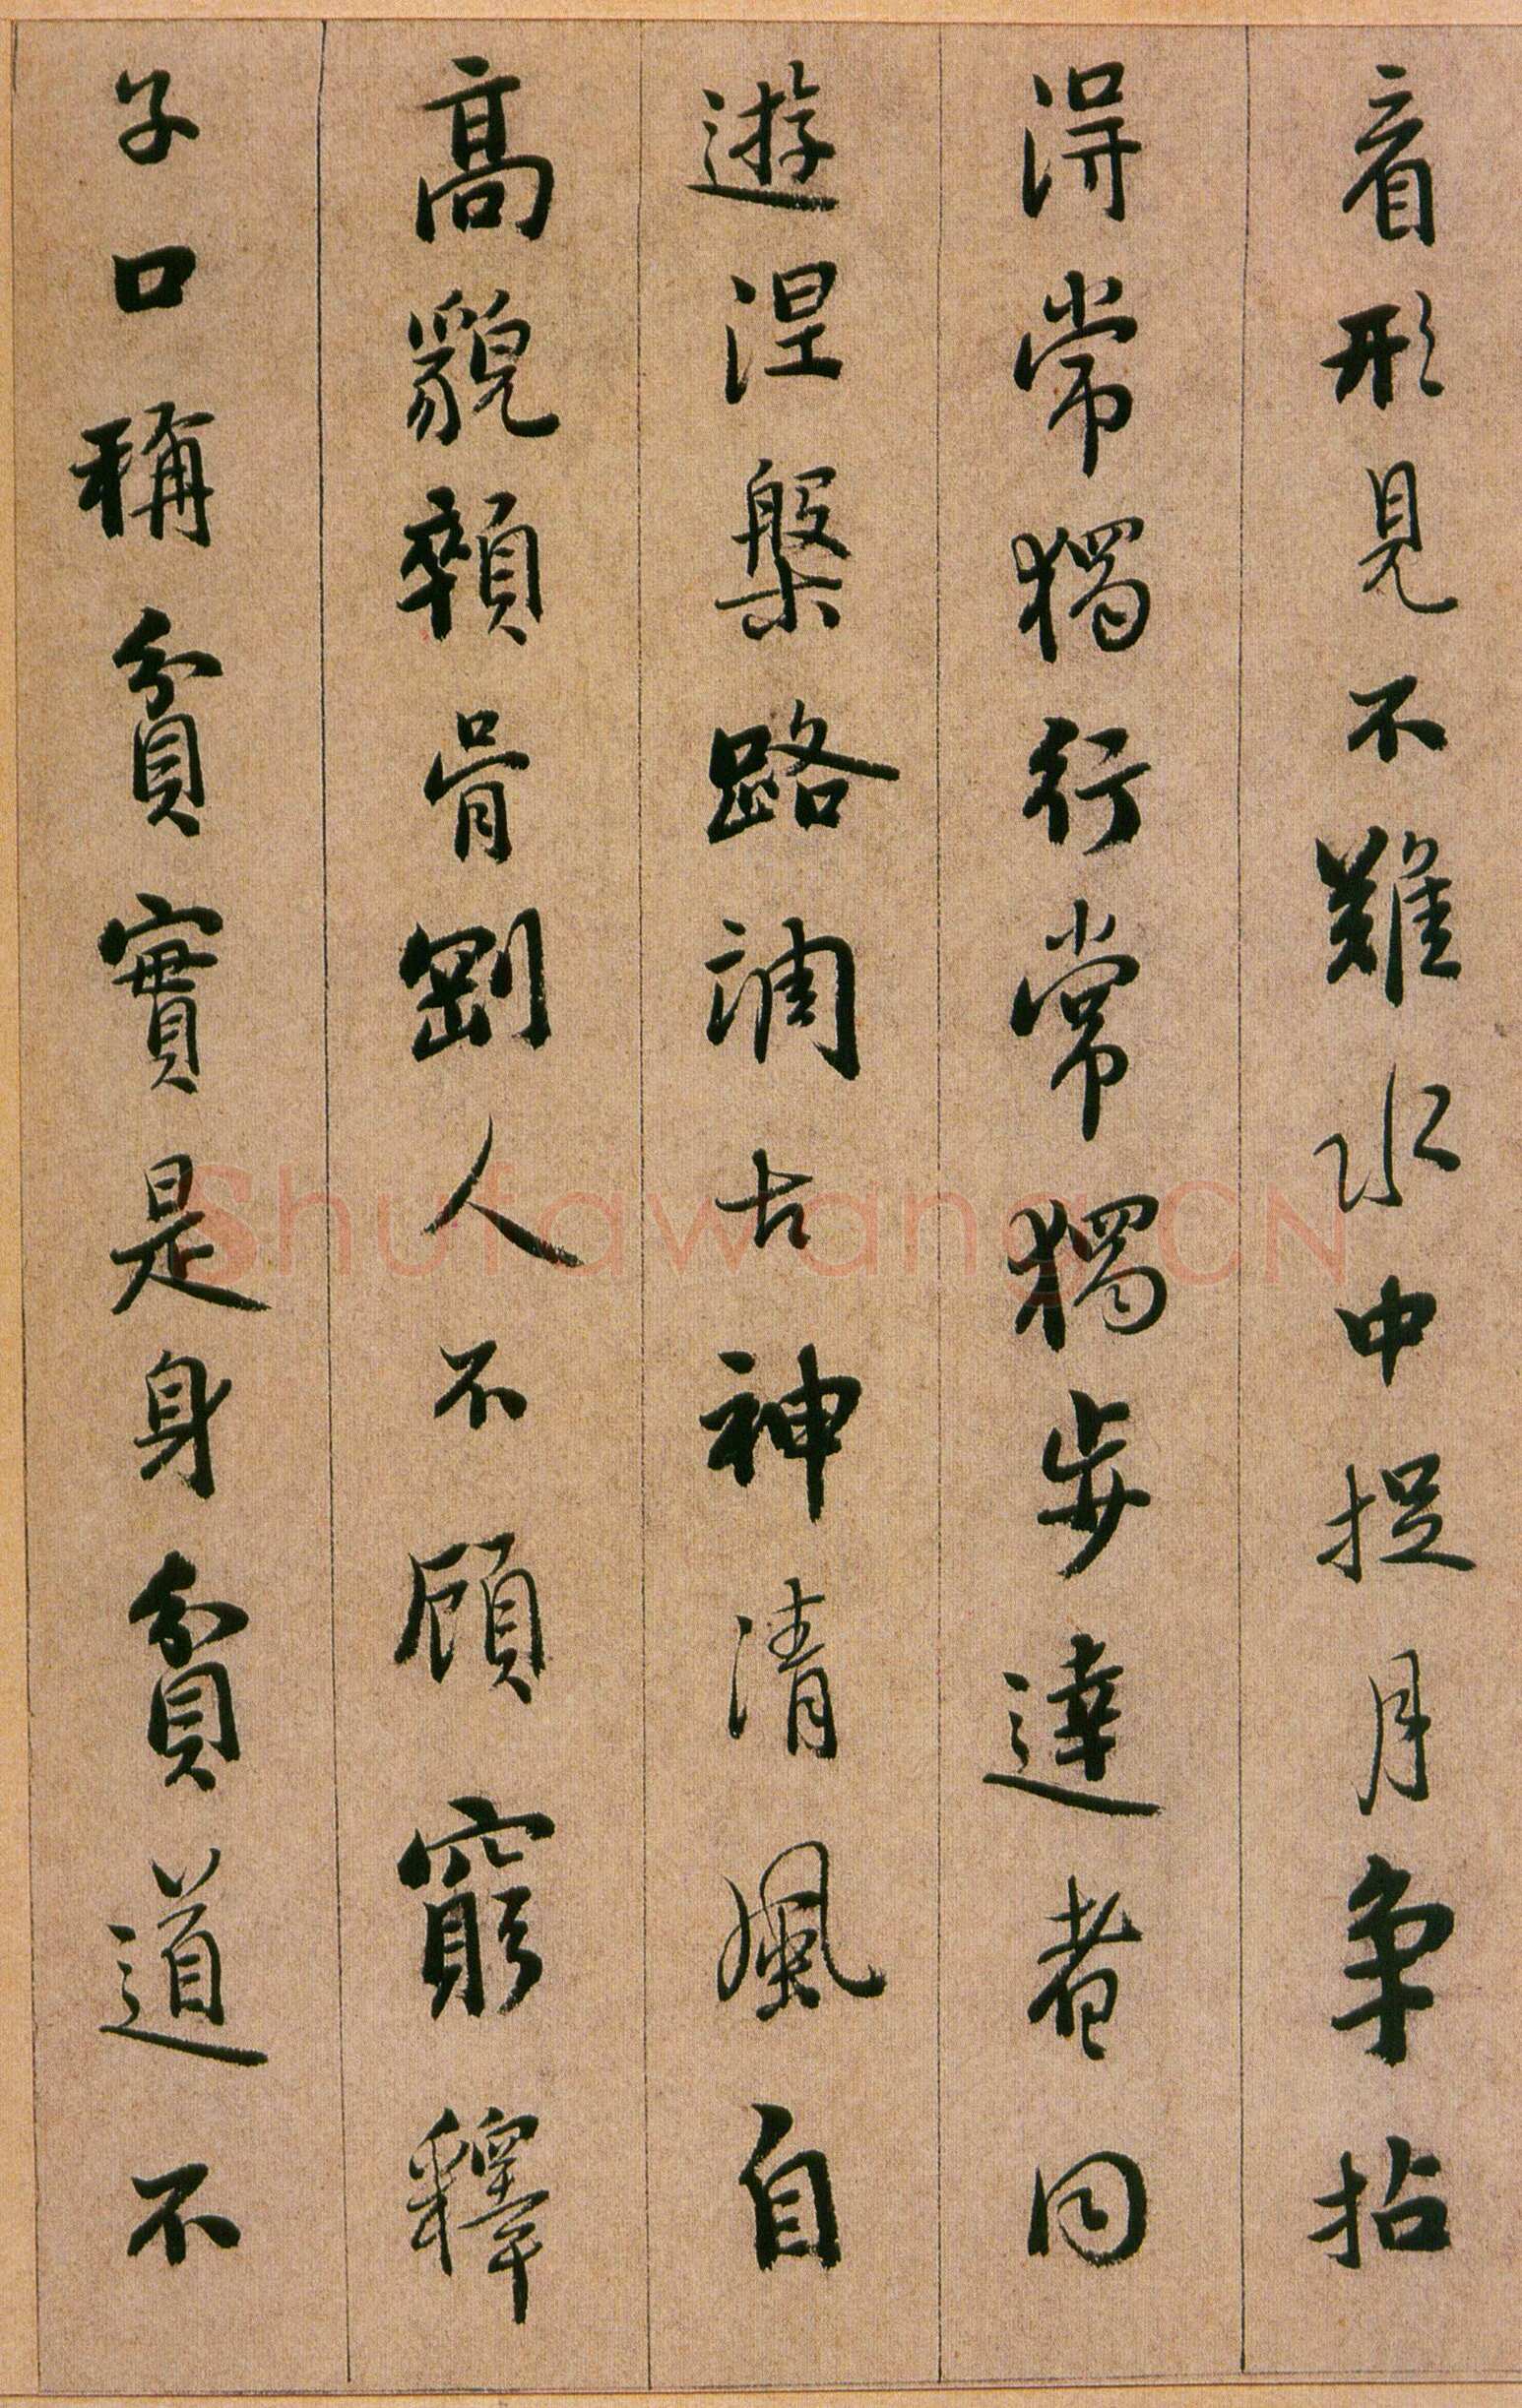 看形見不難水中捉月爭拈
得常獨行常獨步達者同
遊涅槃路調古神清風自
高貌顇骨剛人不顧窮釋
子口稱貧實是身貧道不
Shufawang.CN